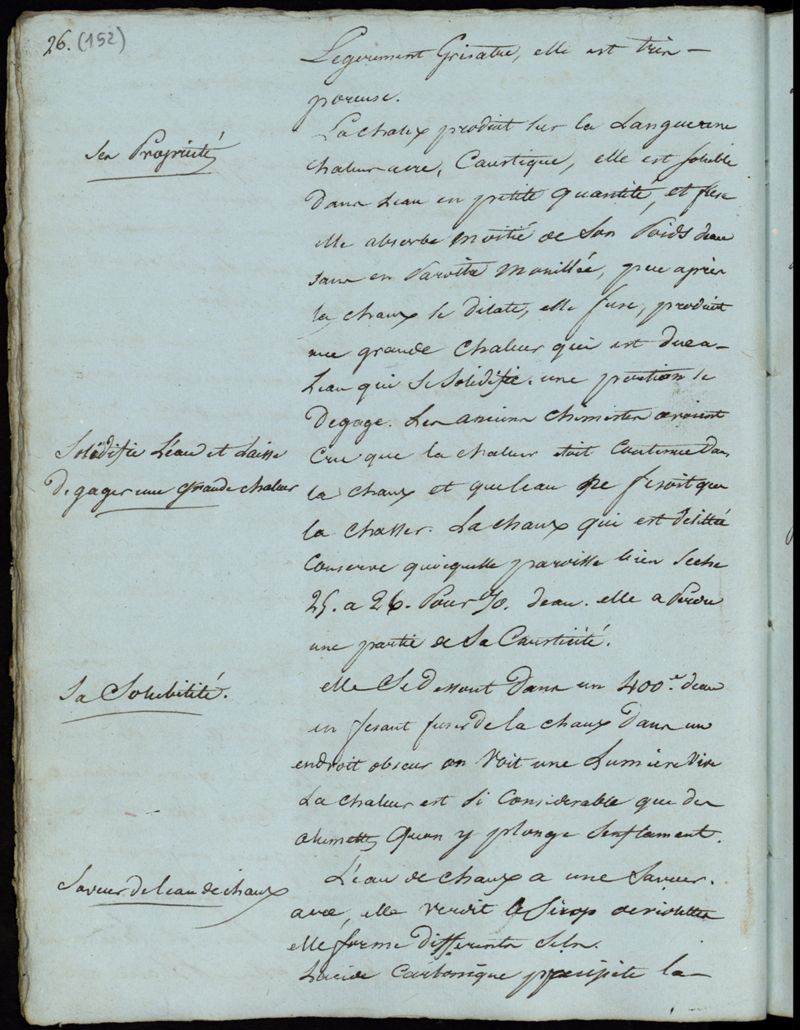 26. (152)
Legerement Grisatre, elle est tres-
poreuse.
ses Propriété
La chaux produit sur la Langue une
chaleur acre, Caustique, elle est soluble
Dans Leau en petite quantité, et fuse
elle absorbe moitié de son Poids deau
sans en Paroitre Mouillée, peu après
la chaux se dilate, elle fuse, produit
une grande chaleur qui est due a-
Leau qui se Solidifie. une portion se
Degage. Les anciens chimistes avoient
Solidifie L'eau et Laisse
Degager une Grande chaleur
Cru que la chaleur etoit Contenue dans
la chaux et que leau ne fesoit que
la chasser. La chaux qui est delittée
Conserve quoiquelle paroisse bien seche
25. a 26. Pour %. deau. elle a Perdu
une partie de Sa Causticité.
Sa Solubilité.
elle Se Dessout Dans un 400.e deau
en fesant fuser de la chaux Dans un
endroit obscur on Voit une Lumiere Vive
La chaleur est si Considerable que des
alumettes Quon y plonge senflament.
Saveur de leau de chaux
L'eau de chaux a une Saveur.
acre, elle verdit le Sirop de violettes
elle forme Differents Sels.
Lacide Carbonique precipite la-